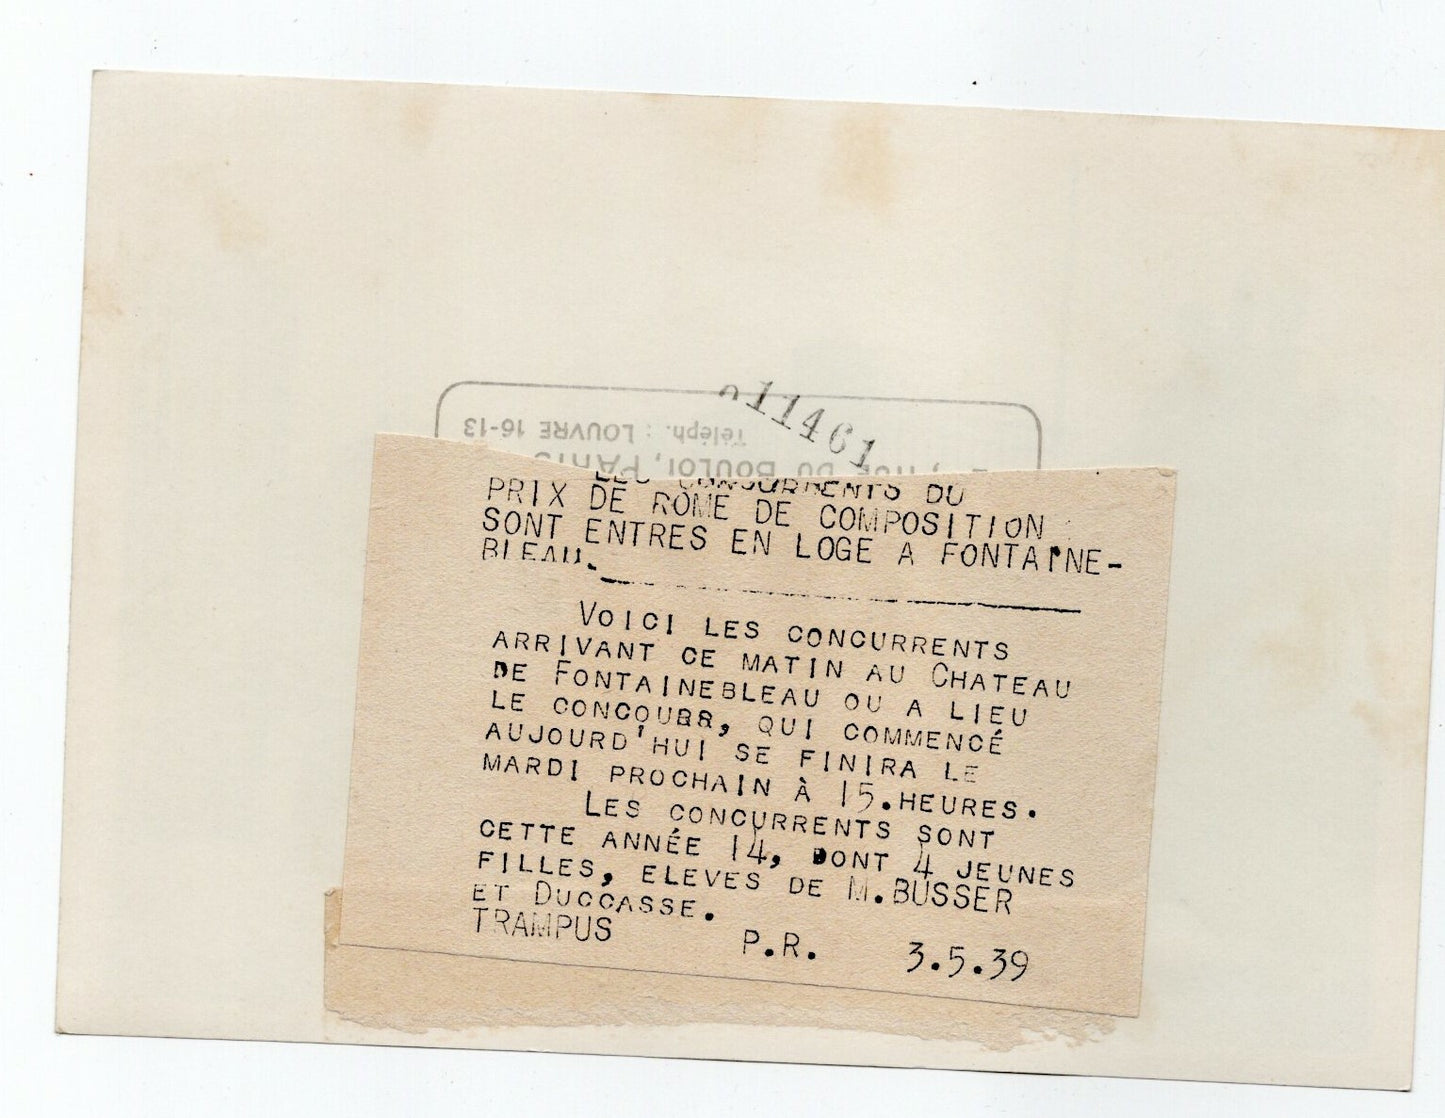 011461
Téléph. : LOUVRE 16-13
RUE DU BOULOI, PARIS
LES CONCURRENTS DU
PRIX DE ROME DE COMPOSITION
SONT ENTRES EN LOGE A FONTAINE-
BLEAU.
VOICI LES CONCURRENTS
ARRIVANT CE MATIN AU CHATEAU
DE FONTAINEBLEAU OU A LIEU
LE CONCOURR, QUI COMMENCÉ
AUJOURD'HUI SE FINIRA LE
MARDI PROCHAIN À 15.HEURES.
LES CONCURRENTS SONT
CETTE ANNÉE 14, DONT 4 JEUNES
FILLES, ELEVES DE M.BUSSER
ET DUCCASSE.
TRAMPUS P.R. 3.5.39